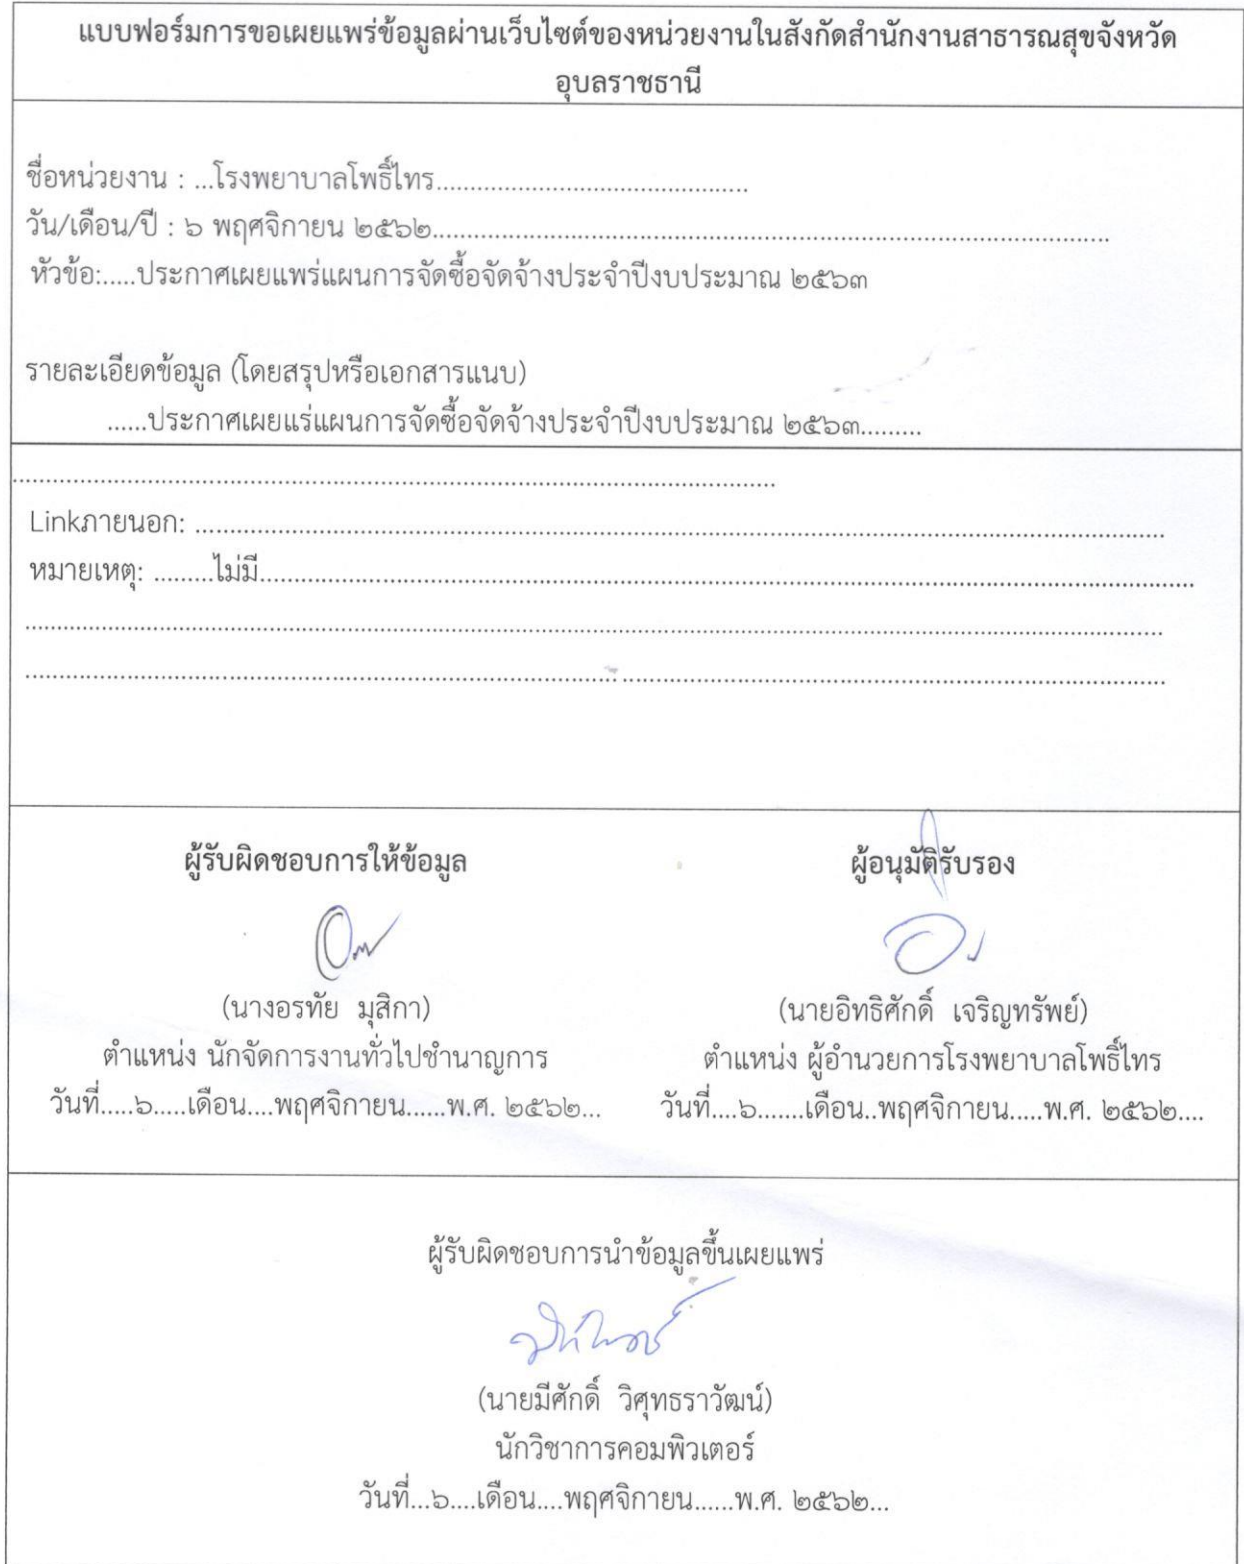 แบบฟอร์มการขอเผยแพร่ข้อมูลผ่านเว็บไซต์ของหน่วยงานในสังกัดสำนักงานสาธารณสุขจังหวัด
อุบลราชธานี
ชื่อหน่วยงาน : ...โรงพยาบาลโพธิ์ไทร..............................................
วัน/เดือน/ปี : ๖ พฤศจิกายน ๒๕๖๒....................................................................................................
หัวข้อ:.....ประกาศเผยแพร่แผนการจัดซื้อจัดจ้างประจำปีงบประมาณ ๒๕๖๓
รายละเอียดข้อมูล (โดยสรุปหรือเอกสารแนบ)
......ประกาศเผยแร่แผนการจัดซื้อจัดจ้างประจำปีงบประมาณ ๒๕๖๓.........
..................................................................................................................
Linkภายนอก: ................................................................................................................................................
หมายเหตุ: .........ไม่มี...........................................................................................................................................
..........................................................................................................................................................................
..........................................................................................................................................................................
ผู้รับผิดชอบการให้ข้อมูล
ผู้อนุมัติรับรอง
(นางอรทัย มุสิกา)
(นายอิทธิศักดิ์ เจริญทรัพย์)
ตำแหน่ง นักจัดการงานทั่วไปชำนาญการ
ตำแหน่ง ผู้อำนวยการโรงพยาบาลโพธิ์ไทร
วันที่.....๖.....เดือน....พฤศจิกายน......พ.ศ. ๒๕๖๒...
วันที่....๖.......เดือน..พฤศจิกายน.....พ.ศ. ๒๕๖๒....
ผู้รับผิดชอบการนำข้อมูลขึ้นเผยแพร่
(นายมีศักดิ์ วิศุทธราวัฒน์)
นักวิชาการคอมพิวเตอร์
วันที่...๖....เดือน....พฤศจิกายน......พ.ศ. ๒๕๖๒...